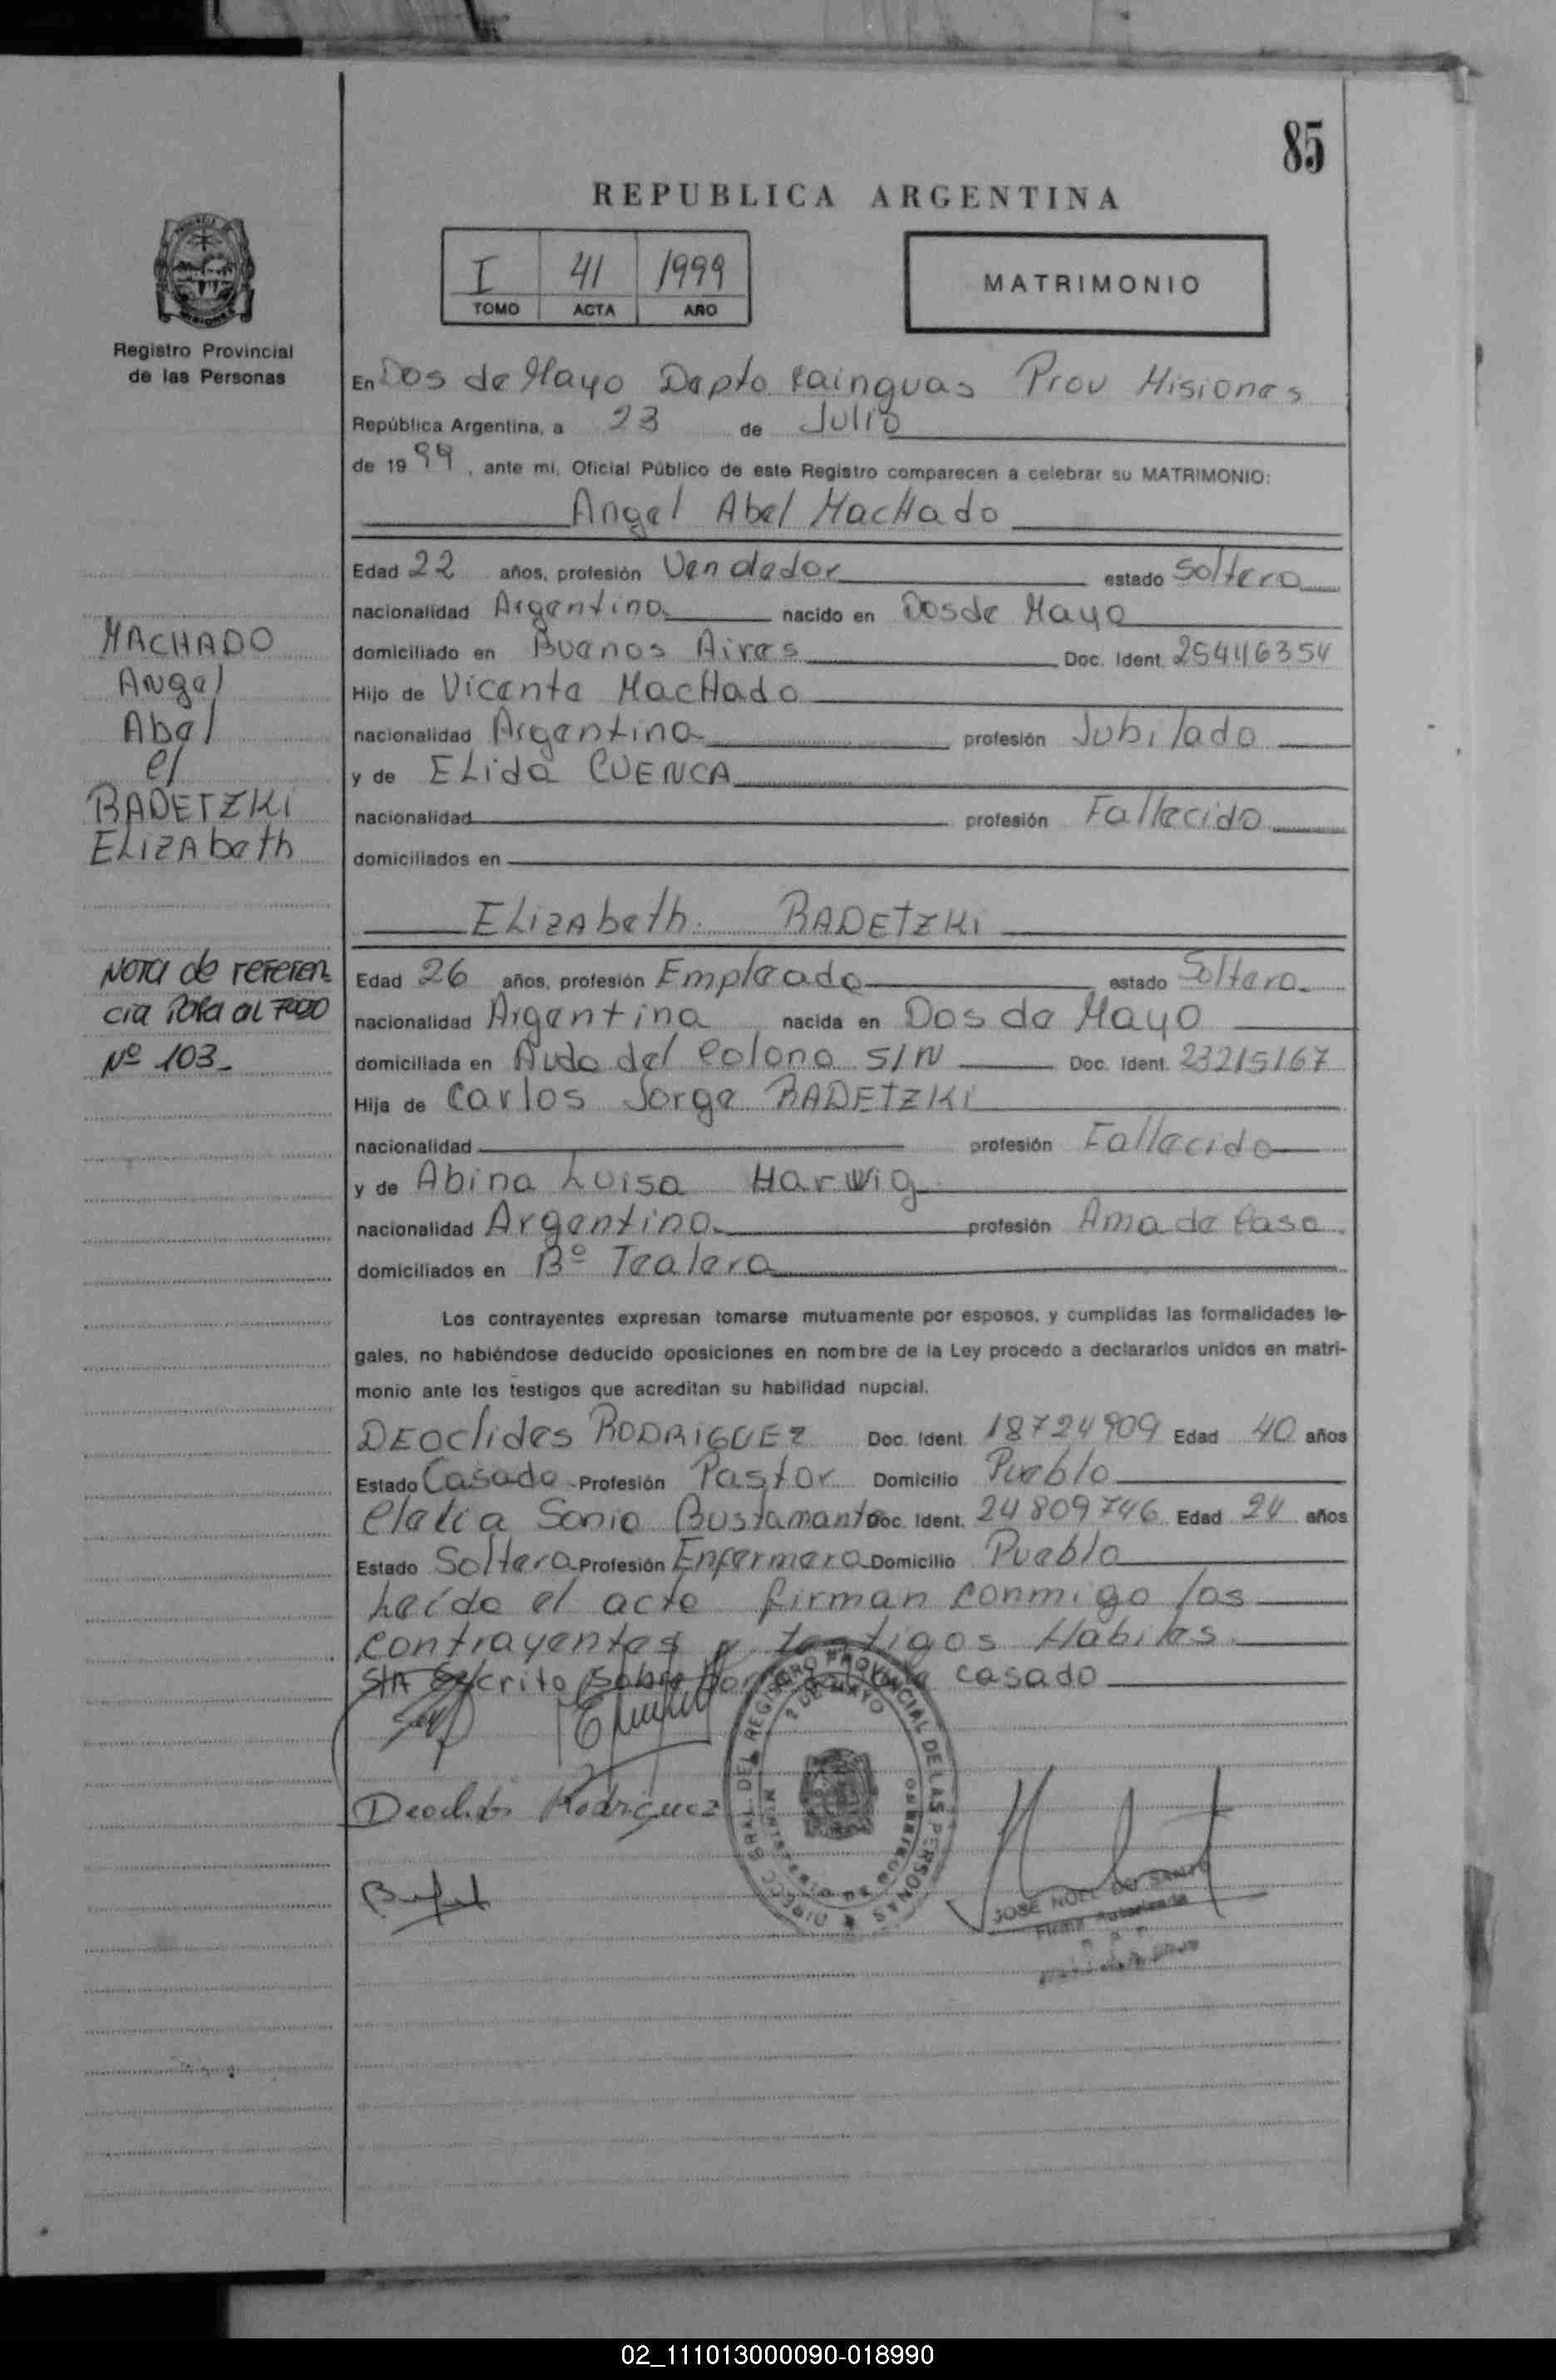 85
REPUBLICA ARGENTINA
I 41 1999
TOMO ACTA AÑO
MATRIMONIO
Registro Provincial
de las Personas
En Dos de Mayo Depto Cainguas Prov Misiones
República Argentina, a 23 de Julio
de 1999, ante mí, Oficial Público de este Registro comparecen a celebrar su MATRIMONIO:
Angel Abel MacHado
Edad 22 años, profesión Vendedor estado Soltero
nacionalidad Argentino nacido en Dos de Mayo
domiciliado en Buenos Aires Doc. Ident. 25446354
Hijo de Vicente MacHado
nacionalidad Argentino profesión Jubilado
y de ELida CUENCA
nacionalidad profesión Fallecido
domiciliados en
MACHADO
Angel
Abel
c/
RADETZKi
ELIZAbeth
ELIZAbeth RADETZKi
Nota de referen
cia Pasa al Folio
Nº 103_
Edad 26 años, profesión Empleada estado Soltera
nacionalidad Argentina nacida en Dos de Mayo
domiciliada en Avda del Colono S/N Doc. Ident. 23215167
Hija de Carlos Jorge RADETZKi
nacionalidad profesión Fallecido
y de Abina Luisa Harwig
nacionalidad Argentina profesión Ama de Casa
domiciliados en Bº Tealera
Los contrayentes expresan tomarse mutuamente por esposos, y cumplidas las formalidades le-
gales, no habiéndose deducido oposiciones en nombre de la Ley procedo a declararlos unidos en matri-
monio ante los testigos que acreditan su habilidad nupcial.
DEoclides RODRIGUEZ Doc. Ident. 18724909 Edad 40 años
Estado Casado Profesión Pastor Domicilio Pueblo
Clelia Sonia Bustamante Doc. Ident. 24809746 Edad 24 años
Estado Soltera Profesión Enfermera Domicilio Pueblo
Leída el acta firman conmigo los
contrayentes y testigos Habiles.
Escrito sobre casado
Deoclides Rodriguez
DIRECC. GRAL. DEL REGISTRO PROVINCIAL DE LAS PERSONAS
2 DE MAYO
MINISTERIO DE GOBIERNO
JOSE NOEL DO SANTO
Firma Autorizada
02_111013000090-018990